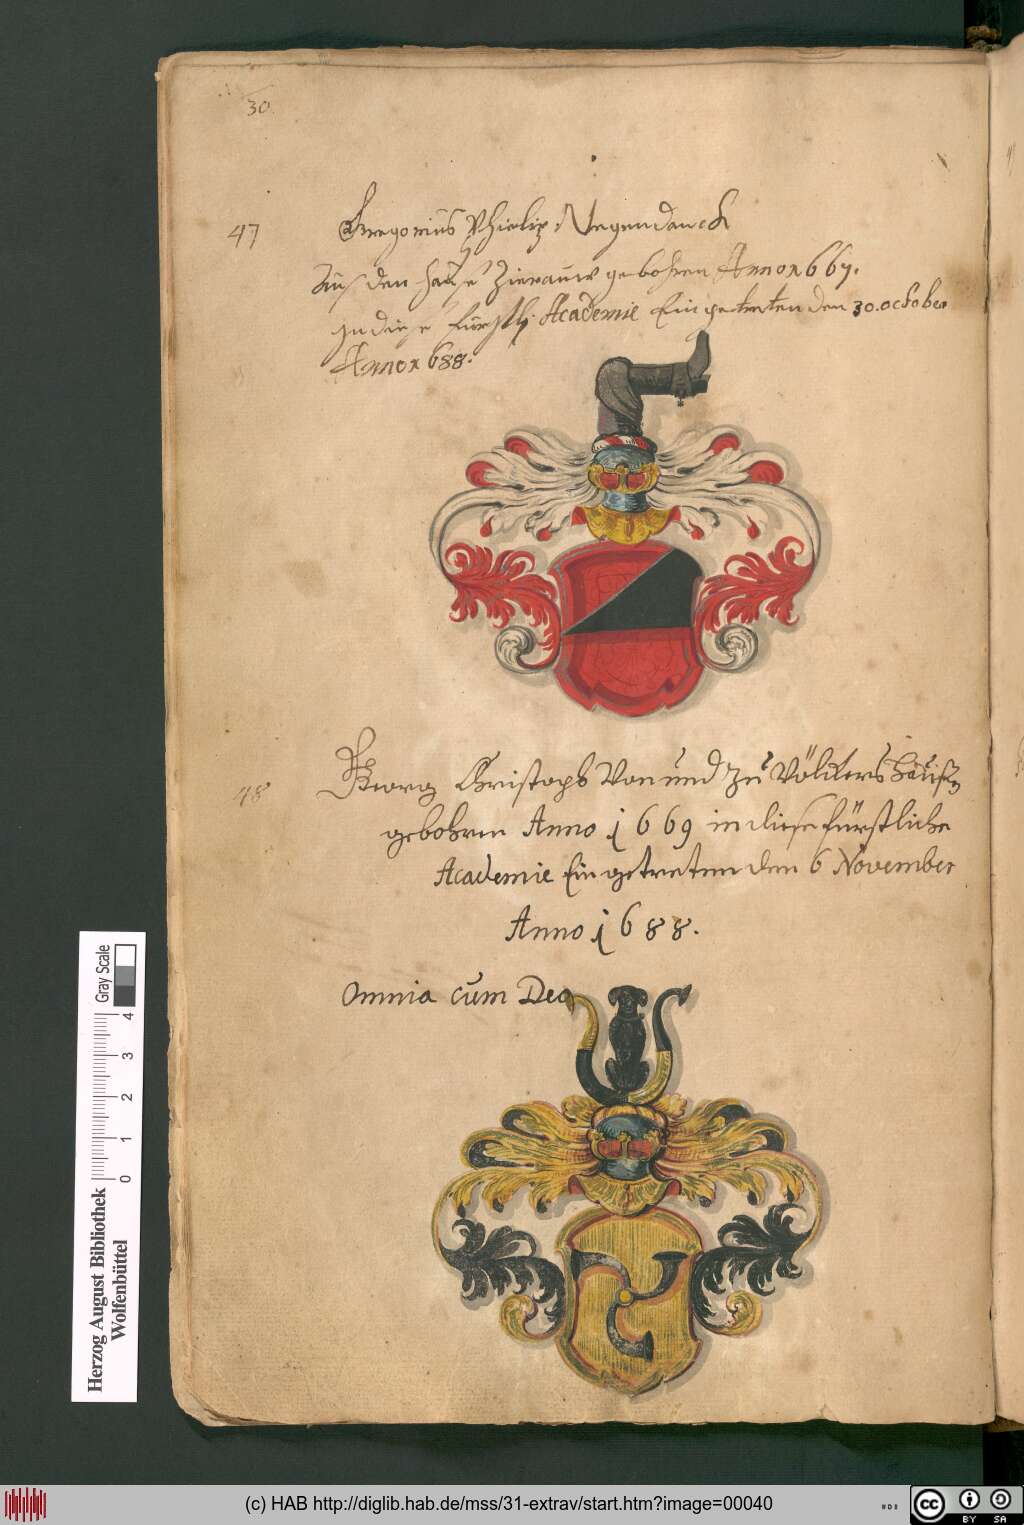 30
47
Gregorius Phielip Negendanck
Aus den Hause Zierauw gebohren Anno 1667.
In diese fürstl: Academie Eingetreten den 30. october
Anno 1688.
48
Georg Christoph Von und Zu Völckershausen
gebohren Anno 1669 in diese fürstliche
Academie Eingetreten den 6 November
Anno 1688.
Omnia cum Deo
Herzog August Bibliothek
Wolfenbüttel
0 1 2 3 4
Gray Scale
(c) HAB http://diglib.hab.de/mss/31-extrav/start.htm?image=00040
cc BY SA